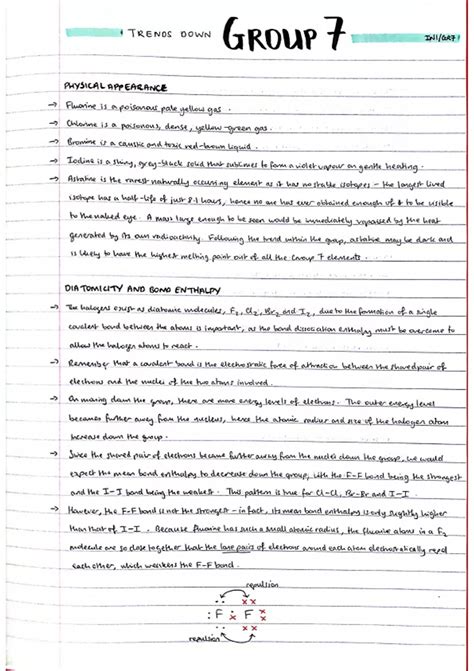 TRENDS DOWN GROUP 7 IN11/GR7
PHYSICAL APPEARANCE
→ Fluorine is a poisonous pale yellow gas.
→ Chlorine is a poisonous, dense, yellow-green gas.
→ Bromine is a caustic and toxic red-brown liquid.
→ Iodine is a shiny, grey-black solid that sublimes to form a violet vapour on gentle heating.
→ Astatine is the rarest naturally occuring element as it has no stable isotopes - the longest lived
isotope has a half-life of just 8.1 hours, hence no one has ever obtained enough of it to be visible
to the naked eye. A mass large enough to be seen would be immediately vapourised by the heat
generated by its own radioactivity. Following the trend within the group, astatine may be dark and
is likely to have the highest melting point out of all the Group 7 elements.
DIATOMICITY AND BOND ENTHALPY
→ The halogens exist as diatomic molecules, F2, Cl2, Br2 and I2, due to the formation of a single
covalent bond between the atoms is important, as the bond dissociation enthalpy must be overcome to
allow the halogen atoms to react.
→ Remember that a covalent bond is the electrostatic force of attraction between the shared pair of
electrons and the nuclei of the two atoms involved.
→ On moving down the group, there are more energy levels of electrons. The outer energy level
becomes further away from the nucleus, hence the atomic radius and size of the halogen atom
increase down the group.
→ Since the shared pair of electrons became further away from the nuclei down the group, we would
expect the mean bond enthalpy to decrease down the group, with the F-F bond being the strongest
and the I-I bond being the weakest. This pattern is true for Cl-Cl, Br-Br and I-I.
→ However, the F-F bond is not the strongest - in fact, its mean bond enthalpy is only slightly higher
than that of I-I. Because fluorine has such a small atomic radius, the fluorine atoms in a F2
molecule are so close together that the lone pairs of electrons around each atom electrostatically repel
each other, which weakens the F-F bond.
repulsion
F F
repulsion